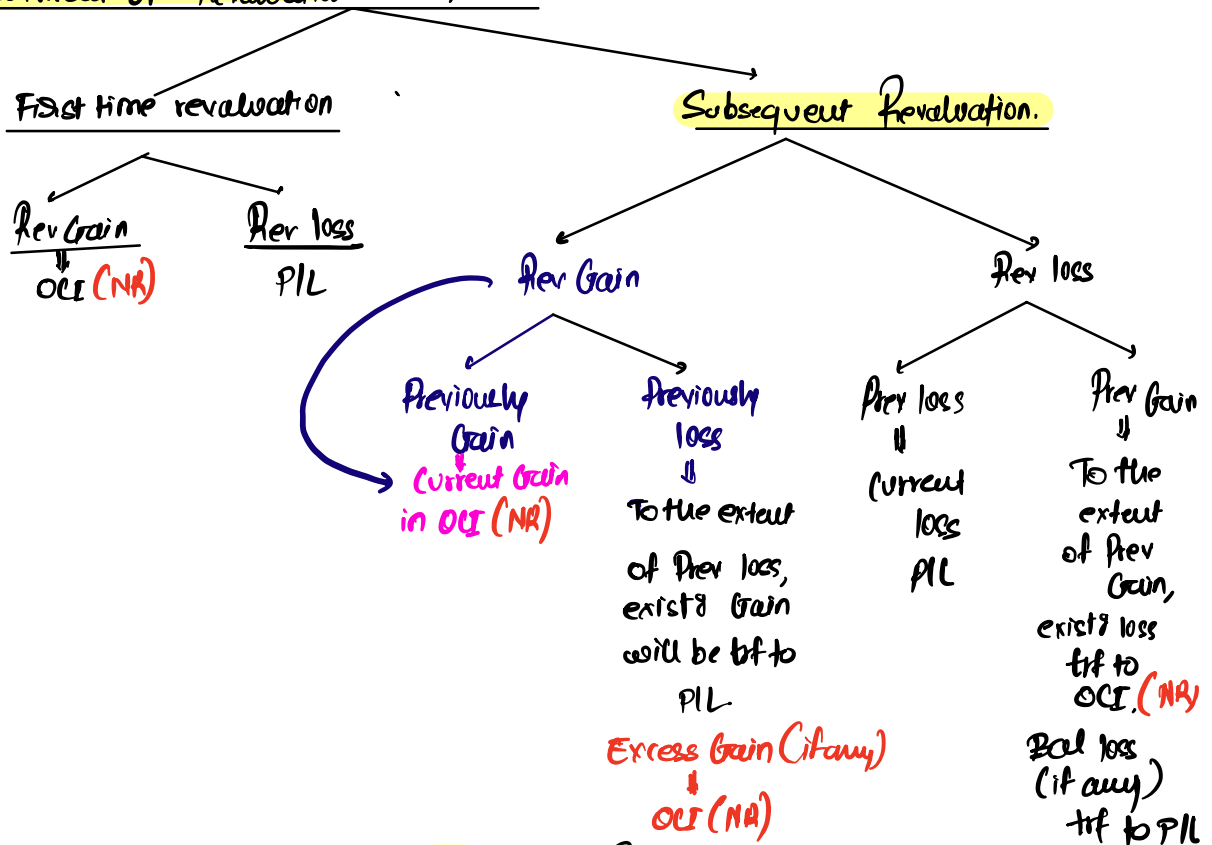 First time revaluation
Subsequent Revaluation.
Rev Gain
Rev loss
OCI (NR)
P/L
Rev Gain
Rev loss
Previously
Gain
Current Gain
in OCI (NR)
Previously
loss
To the extent
of Prev loss,
existg Gain
will be trf to
P/L.
Excess Gain (if any)
OCI (NR)
Prev loss
Current
loss
P/L
Prev Gain
To the
extent
of Prev
Gain,
existg loss
trf to
OCI. (NR)
Bal loss
(if any)
trf to P/L